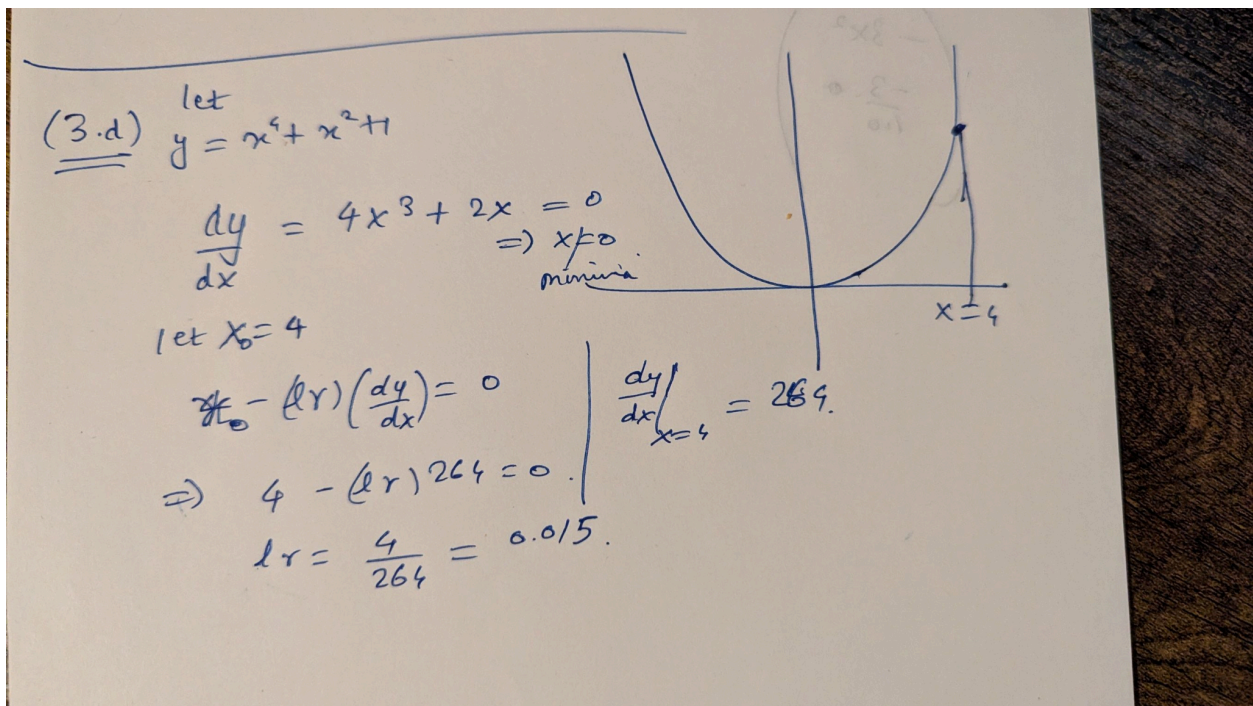 (3.d) let
y = x⁴ + x² + 1
dy/dx = 4x³ + 2x = 0
=) x=0
minima
x = 4
let x₀ = 4
x₀ - (lr)(dy/dx) = 0
dy/dx|x=4 = 264.
=) 4 - (lr) 264 = 0.
lr = 4/264 = 0.015.